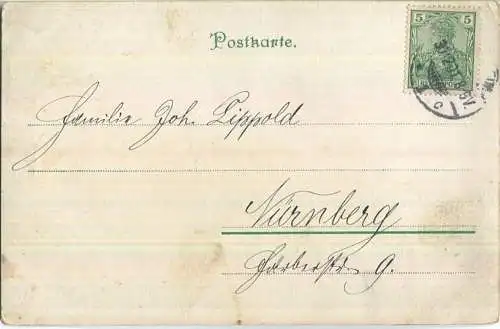 Postkarte.
5 5
Familie Joh. Lippold
Nürnberg
9.